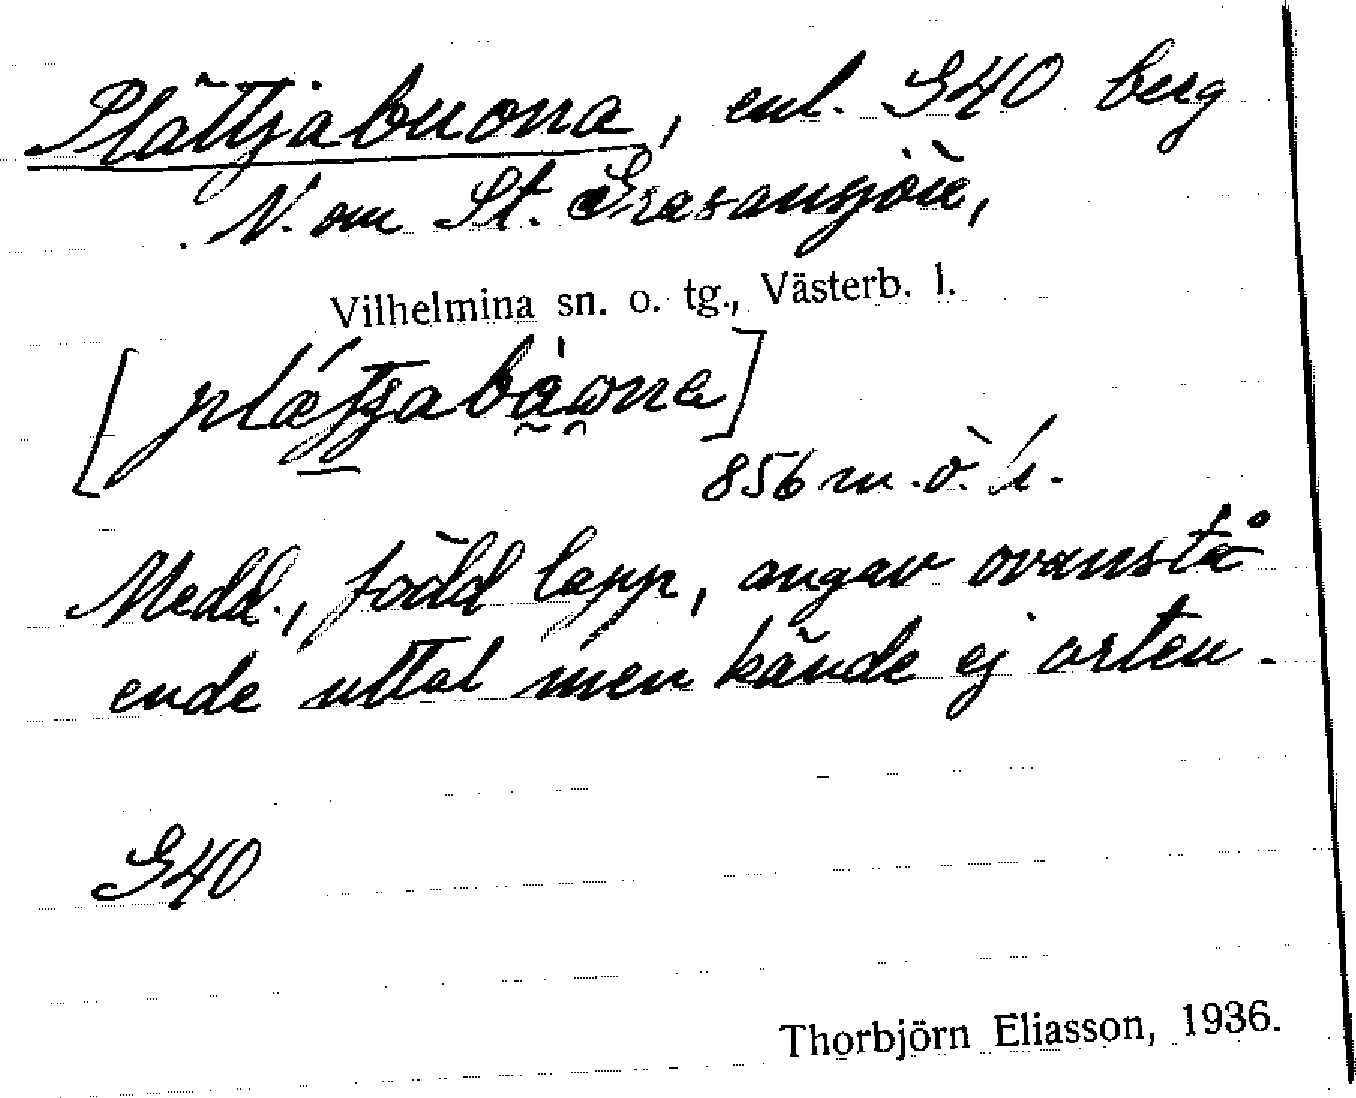 Plättjabuona, enl. G40 berg
N. om St. Grasansjön,
Vilhelmina sn. o. tg., Västerb. l.
856 m. ö. h.
Medd., född lapp, angav ovanstå
ende uttal men kände ej orten.
G40
Thorbjörn Eliasson, 1936.